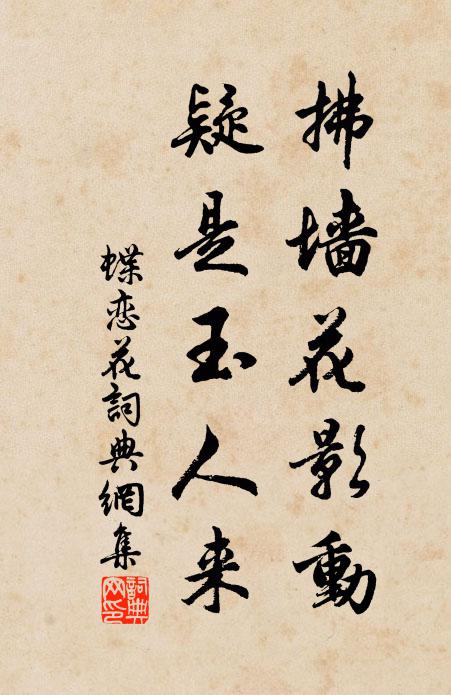 拂墙花影動
疑是玉人来
蝶恋花詞典網集
詞典网印